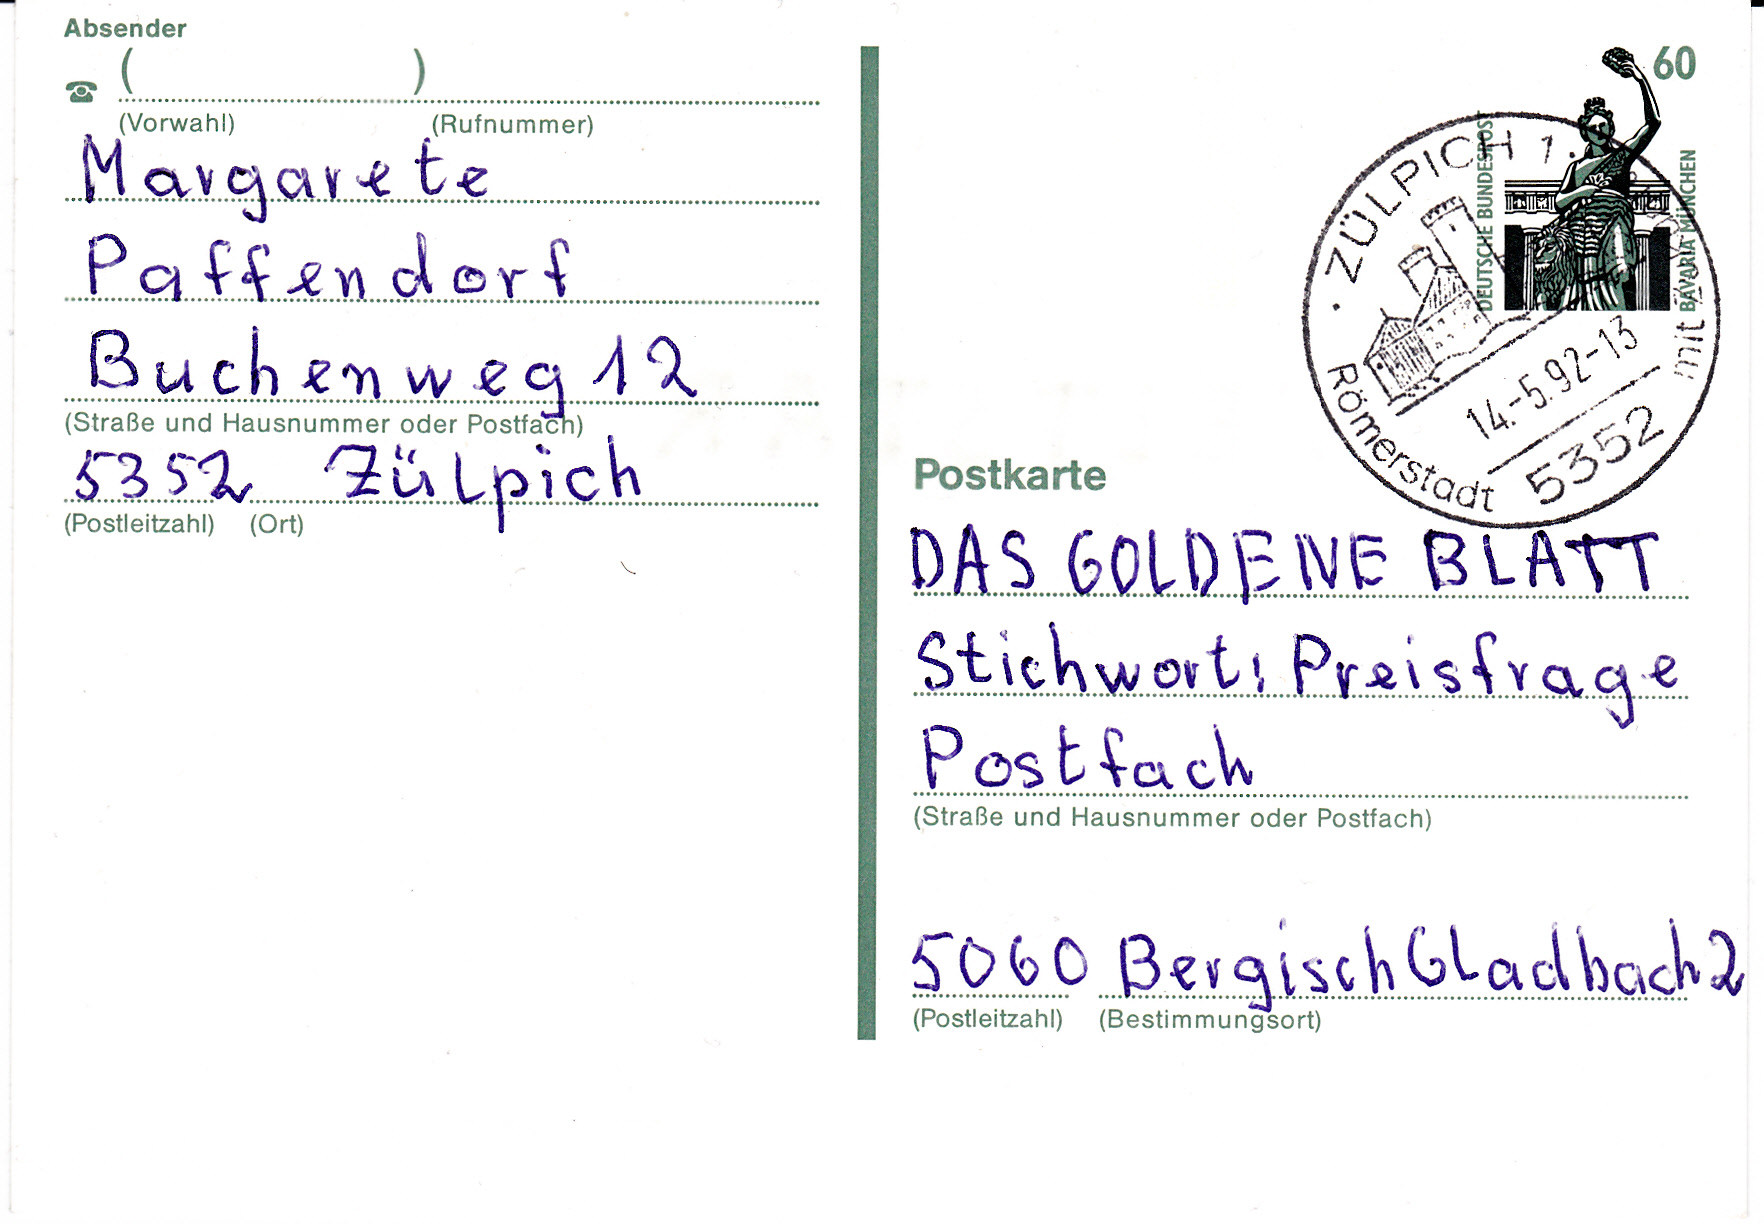 Absender
( )
(Vorwahl) (Rufnummer)
Margarete
Paffendorf
Buchenweg 12
(Straße und Hausnummer oder Postfach)
5352 Zülpich
(Postleitzahl) (Ort)
60
DEUTSCHE BUNDESPOST
BAVARIA MÜNCHEN
· ZÜLPICH 1 ·
14.-5.92-13
5352
Römerstadt
mit
Postkarte
DAS GOLDENE BLATT
Stichwort: Preisfrage
Postfach
(Straße und Hausnummer oder Postfach)
5060 Bergisch Gladbach 2
(Postleitzahl) (Bestimmungsort)